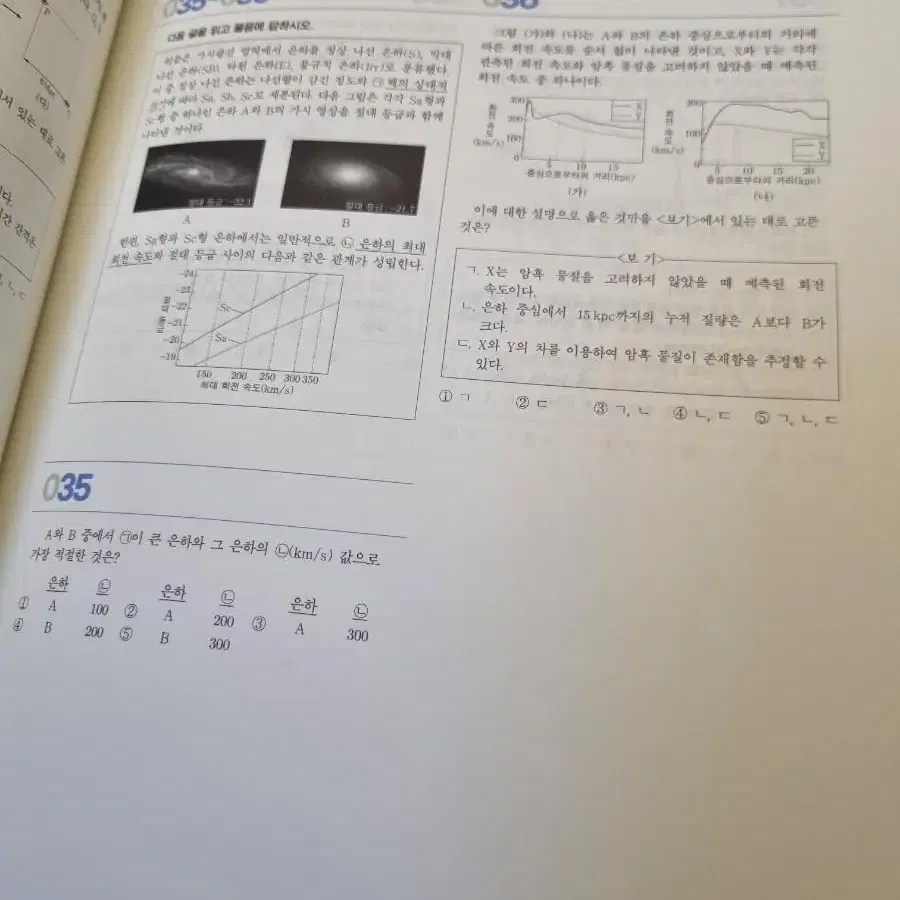 035~036
다음 글을 읽고 물음에 답하시오.
허블은 가시광선 영역에서 은하를 정상 나선 은하(S), 막대
나선 은하(SB), 타원 은하(E), 불규칙 은하(Irr)로 분류했다.
이 중 정상 나선 은하는 나선팔이 감긴 정도와 ㉠ 핵의 상대적
크기에 따라 Sa, Sb, Sc로 세분된다. 다음 그림은 각각 Sa형과
Sc형 중 하나인 은하 A와 B의 가시 영상을 절대 등급과 함께
나타낸 것이다.
절대 등급: -22.1
절대 등급: -21.7
A
B
한편, Sa형과 Sc형 은하에서는 일반적으로 ㉡ 은하의 최대
회전 속도와 절대 등급 사이의 다음과 같은 관계가 성립한다.
절대 등급
-24
-23
-22
-21
-20
-19
Sc
Sa
150 200 250 300 350
최대 회전 속도(km/s)
035
A와 B 중에서 ㉠이 큰 은하와 그 은하의 ㉡(km/s) 값으로
가장 적절한 것은?
은하 ㉡ 은하 ㉡ 은하 ㉡
① A 100 ② A 200 ③ A 300
④ B 200 ⑤ B 300
036
그림 (가)와 (나)는 A와 B의 은하 중심으로부터의 거리에
따른 회전 속도를 순서 없이 나타낸 것이고, X와 Y는 각각
관측된 회전 속도와 암흑 물질을 고려하지 않았을 때 예측된
회전 속도 중 하나이다.
회전 속도 (km/s)
300
200
100
0
X
Y
5 10 15
중심으로부터의 거리(kpc)
(가)
회전 속도 (km/s)
200
100
0
X
Y
5 10 15 20
중심으로부터의 거리(kpc)
(나)
이에 대한 설명으로 옳은 것만을 <보기>에서 있는 대로 고른
것은?
<보 기>
ㄱ. X는 암흑 물질을 고려하지 않았을 때 예측된 회전
속도이다.
ㄴ. 은하 중심에서 15kpc까지의 누적 질량은 A보다 B가
크다.
ㄷ. X와 Y의 차를 이용하여 암흑 물질이 존재함을 추정할 수
있다.
① ㄱ ② ㄷ ③ ㄱ, ㄴ ④ ㄴ, ㄷ ⑤ ㄱ, ㄴ, ㄷ